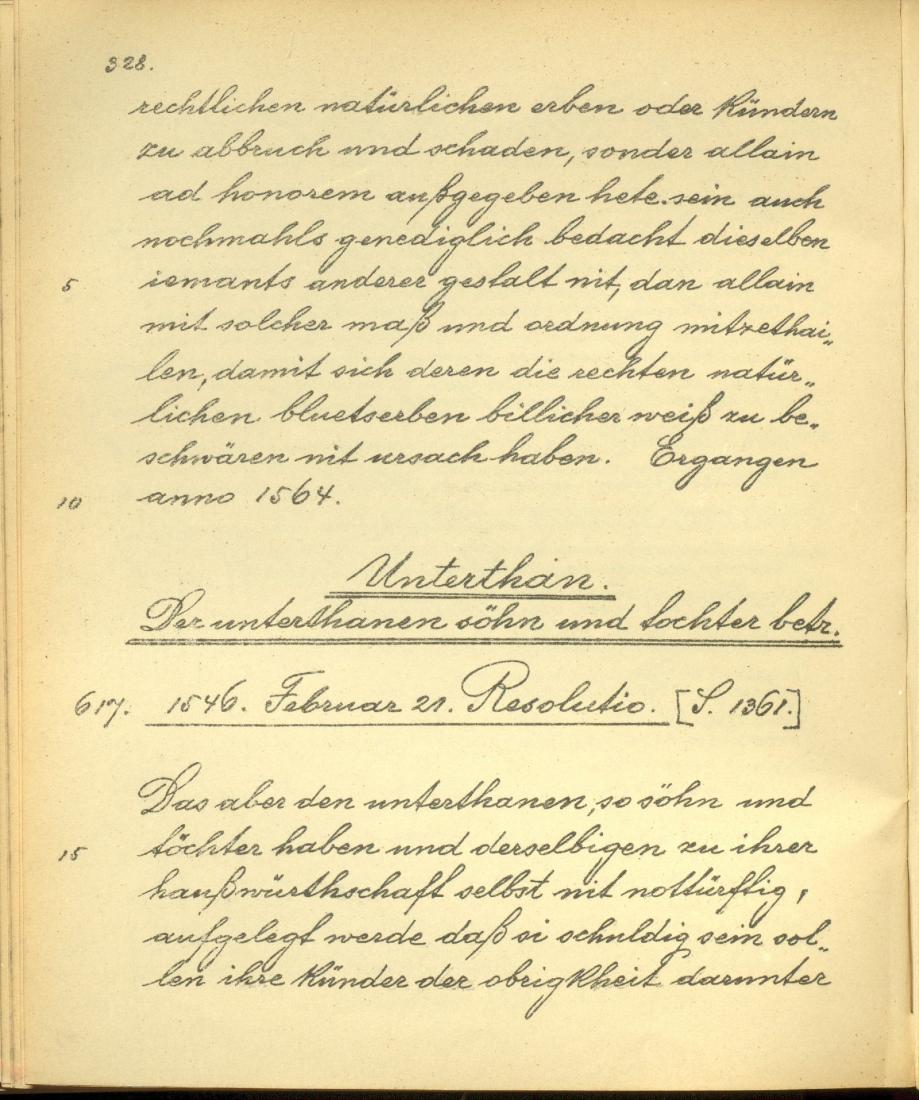 328.
rechtlichen natürlichen erben oder kündern
zu abbruch und schaden, sonder allain
ad honorem außgegeben hete. sein auch
nochmahls genediglich bedacht dieselben
5 iemants anderer gestalt nit, dan allain
mit solcher maß und ordnung mitzethai„
len, damit sich deren die rechten natür„
lichen bluetserben billicher weiß zu be„
schwären nit ursach haben. Ergangen
10 anno 1564.
Unterthan.
Der unterthanen söhn und tochter betr.
617. 1546. Februar 21. Resolutio. [S. 1361.]
Das aber den unterthanen, so söhn und
15 töchter haben und derselbigen zu ihrer
haußwürthschaft selbst nit nottürftig,
aufgelegt werde daß si schuldig sein sol„
len ihre künder der obrigkheit darunter